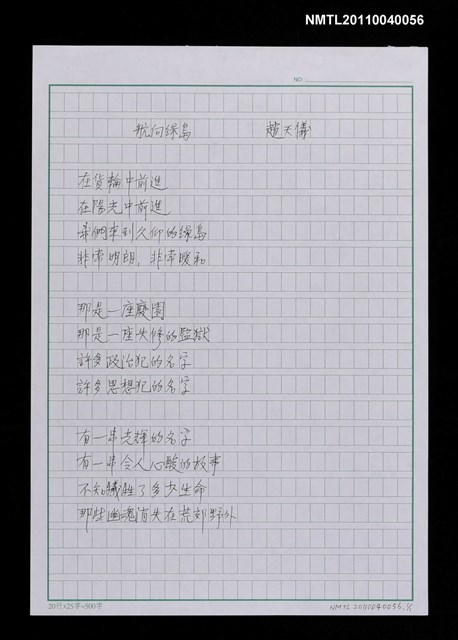 NMTL20110040056
NO.
航向綠島 趙天儀
在貨輪中前進
在陽光中前進
我們來到久仰的綠島
非常明朗，非常暖和
那是一座廢園
那是一座失修的監獄
許多政治犯的名字
許多思想犯的名字
有一串光輝的名字
有一串令人心酸的故事
不知犧牲了多少生命
那些幽魂消失在荒郊野外
20行x25字=500字
NMTL 20110040056.1/1